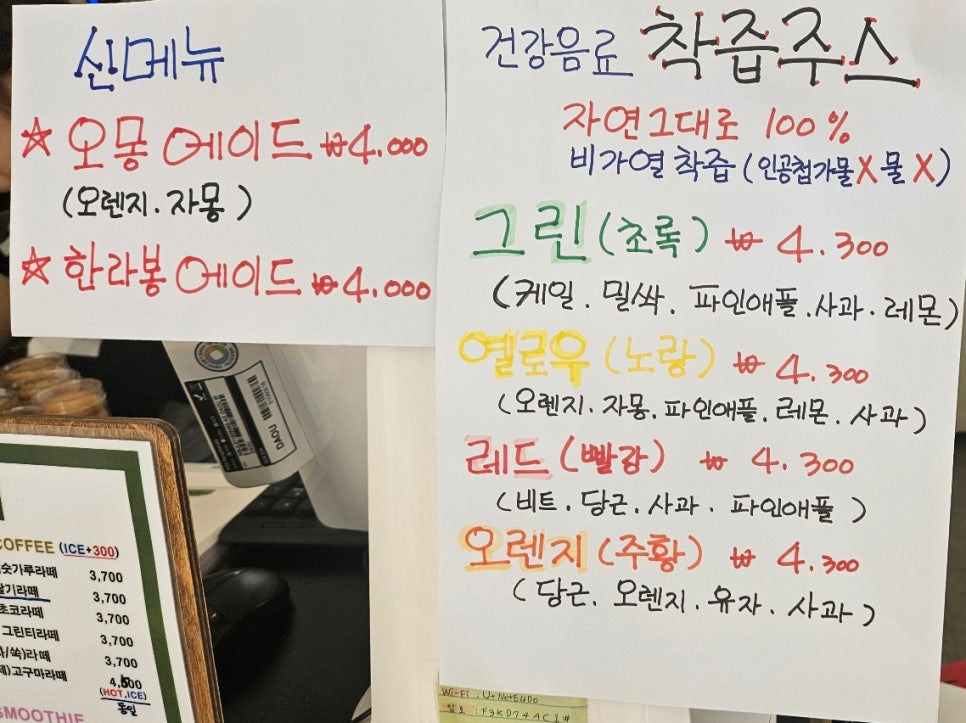 신메뉴
☆ 오몽 에이드 ₩4.000
(오렌지.자몽)
☆ 한라봉 에이드 ₩4.000
건강음료 착즙주스
자연그대로 100%
비가열 착즙 (인공첨가물X 물X)
그린 (초록) ₩ 4.300
(케일. 밀싹. 파인애플.사과.레몬)
옐로우 (노랑) ₩ 4.300
(오렌지.자몽.파인애플.레몬.사과)
레드 (빨강) ₩ 4.300
(비트.당근.사과.파인애플)
오렌지 (주황) ₩ 4.300
(당근.오렌지.유자.사과)
DAOU
COFFEE (ICE+300)
숫가루라떼 3,700
딸기라떼 3,700
초코라떼 3,700
그린티라떼 3,700
/쑥)라떼 3,700
)고구마라떼
(HOT,ICE)
동일
SMOOTHIE
Wi-Fi : U+Net
: F3KD744C1#